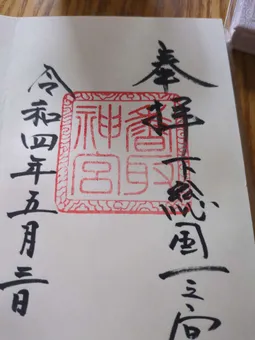 奉拝
下総国一之宮
香取
神宮
令和四年五月三日